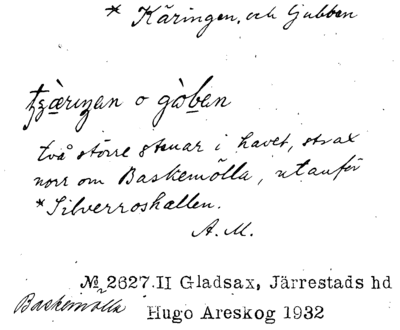 * Käringen, och Gubben
tʒàriŋan o gòb̲an
två större stenar i havet, strax
norr om Baskemölla, utanför
*Silverroshällen.
A.M.
№ 2627.II Gladsax, Järrestads hd
Baskemölla Hugo Areskog 1932